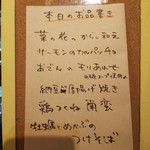 本日のお品書き
菜の花のからし和え
サーモンのカルパッチョ
おでんのもりあわせ
納豆留揚げ焼き
鶏つくね南蛮
牡蠣とめかぶの
つけそば